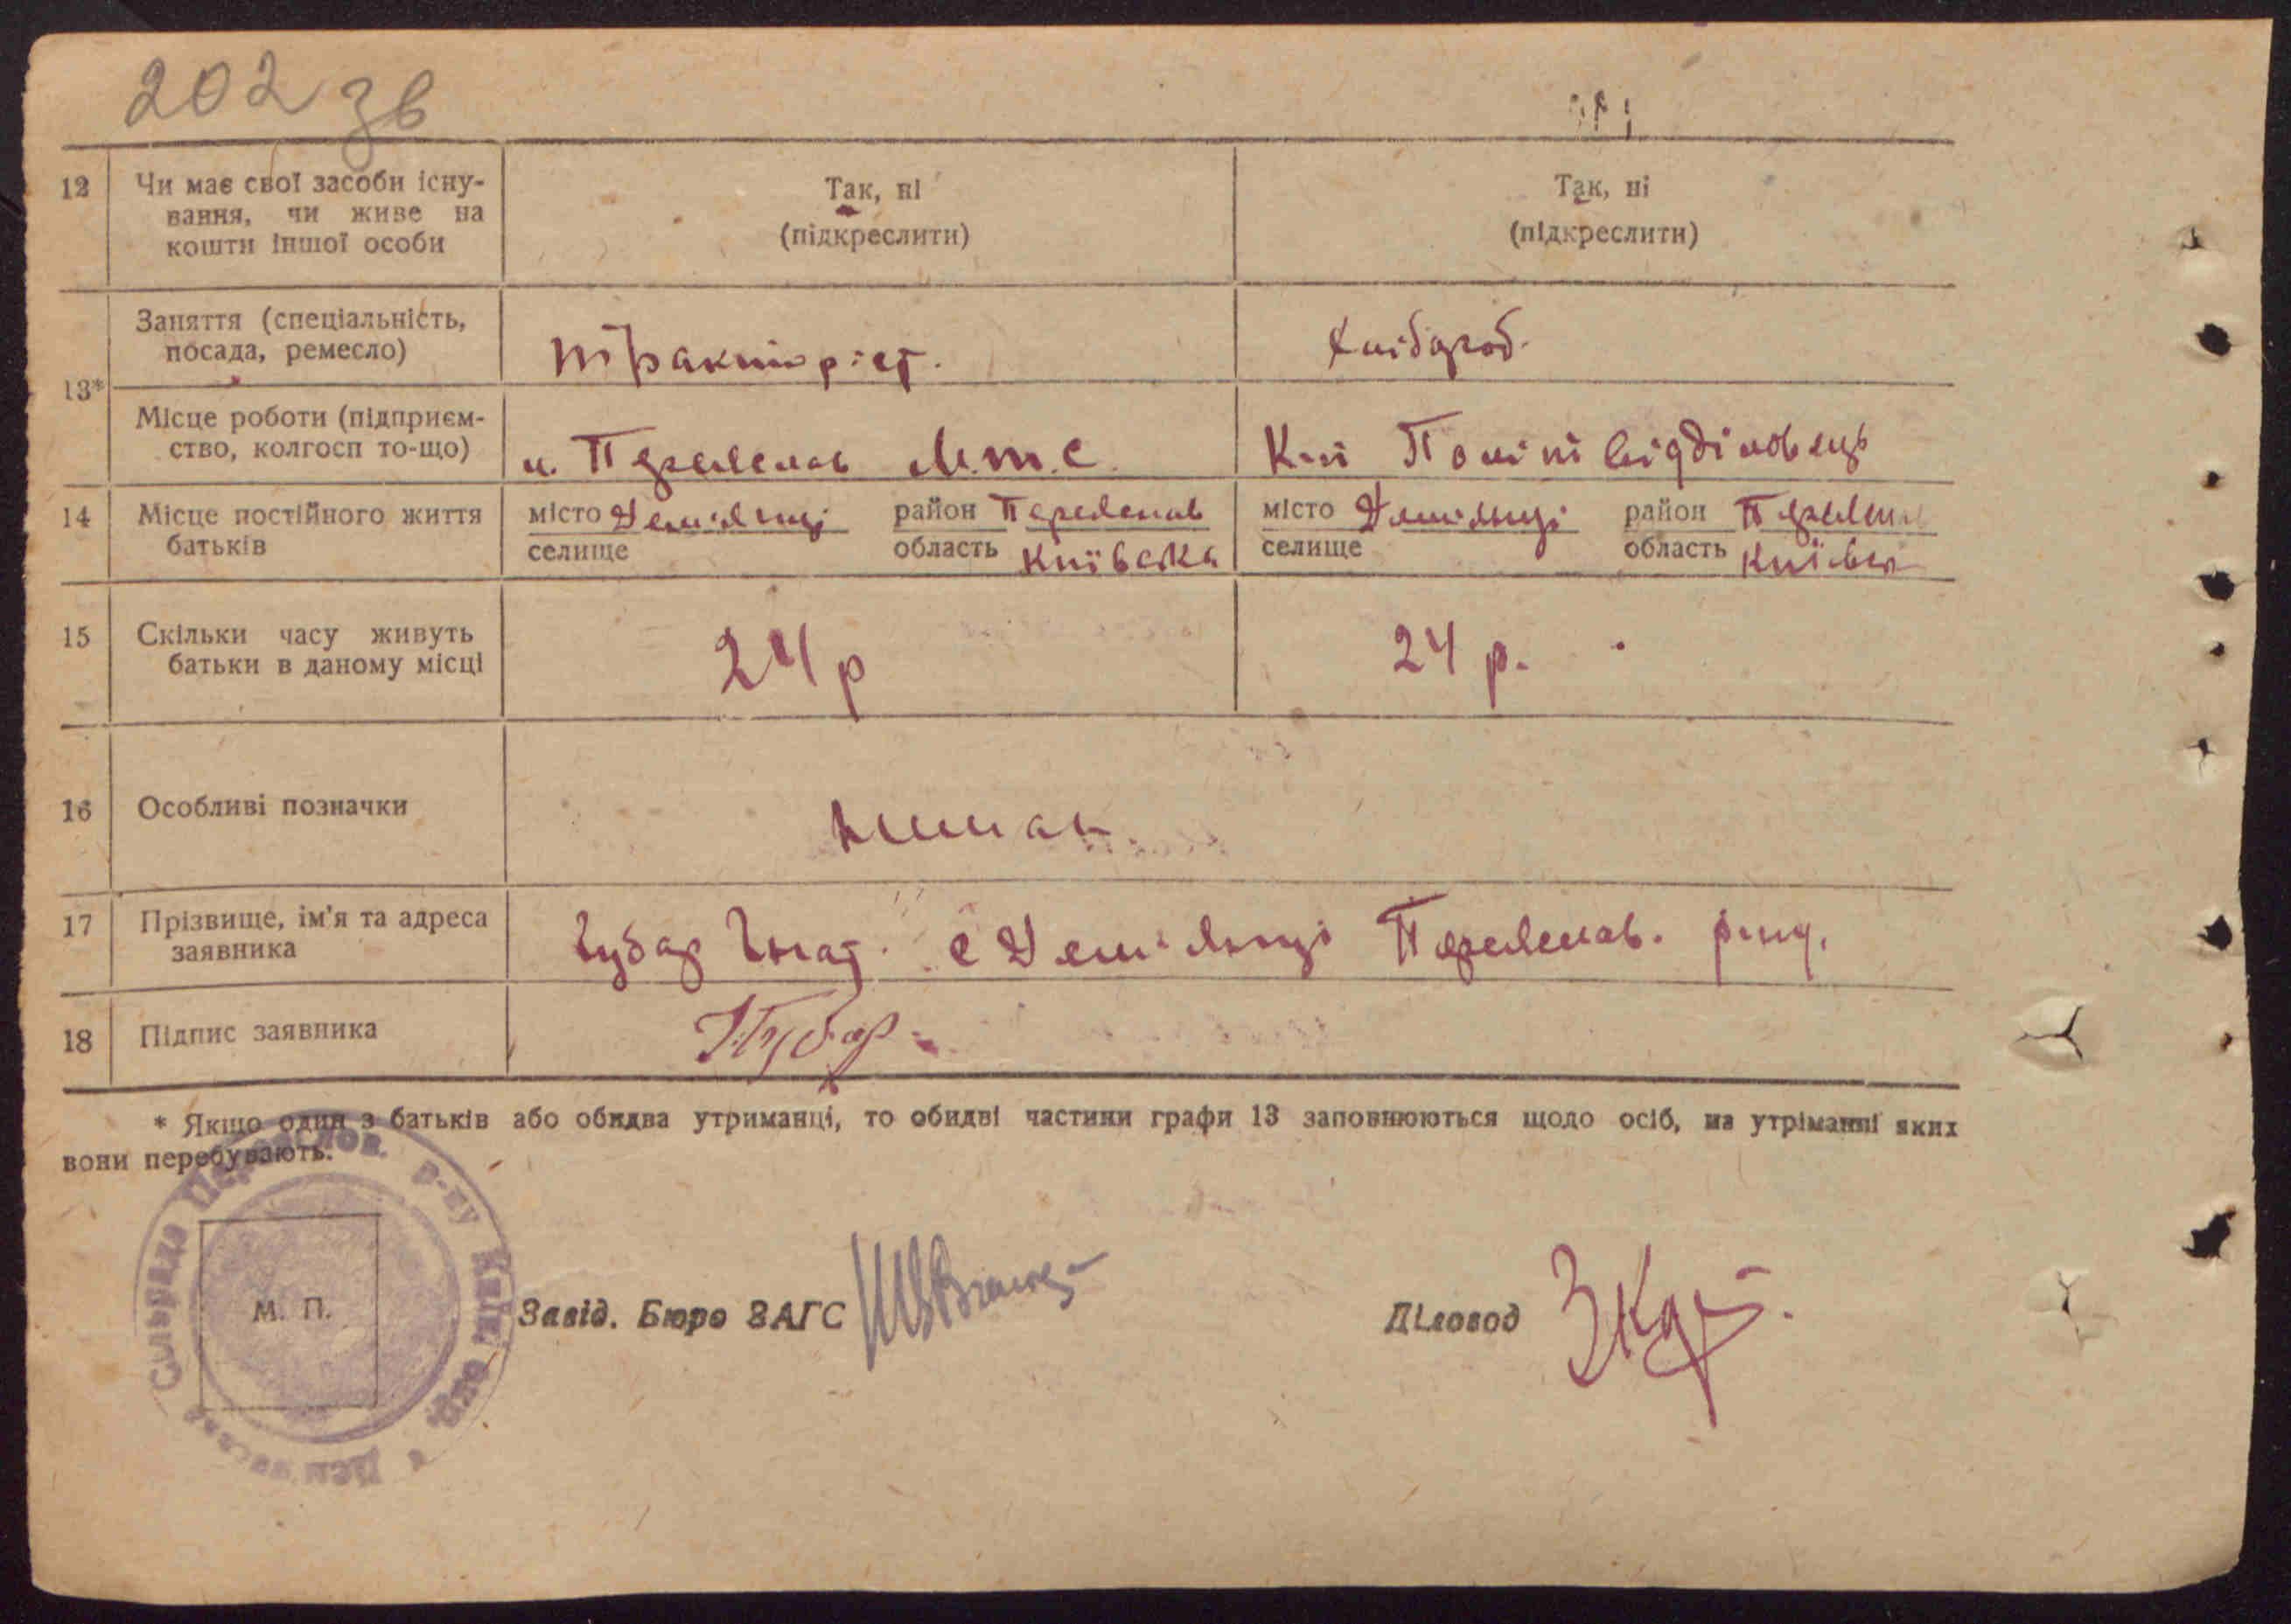 202 зв
12 Чи має свої засоби існу- Так, ні Так, ні
вання, чи живе на (підкреслити) (підкреслити)
кошти іншої особи
Заняття (спеціальність, тракторіст. Хлібороб.
посада, ремесло)
13*
Місце роботи (підприєм-
ство, колгосп то-що) Переяслав М.Т.С. Політвідділовець
14 Місце постійного життя місто Дем'янці район Переяслав місто Дем'янці район Переяслав
батьків селище область Київська селище область Київська
15 Скільки часу живуть 24 р 24 р.
батьки в даному місці
16 Особливі позначки немає.
17 Прізвище, ім'я та адреса Губар Гнат. с Дем'янці Переяслав. р-ну.
заявника
18 Підпис заявника Губар
* Якщо один з батьків або обидва утриманці, то обидві частини графи 13 заповнюються щодо осіб, на утріманні яких
вони перебувають.
Сільрада Переяслов. р-ну Київ. окр.
М. П. Завід. Бюро ЗАГС Діловод